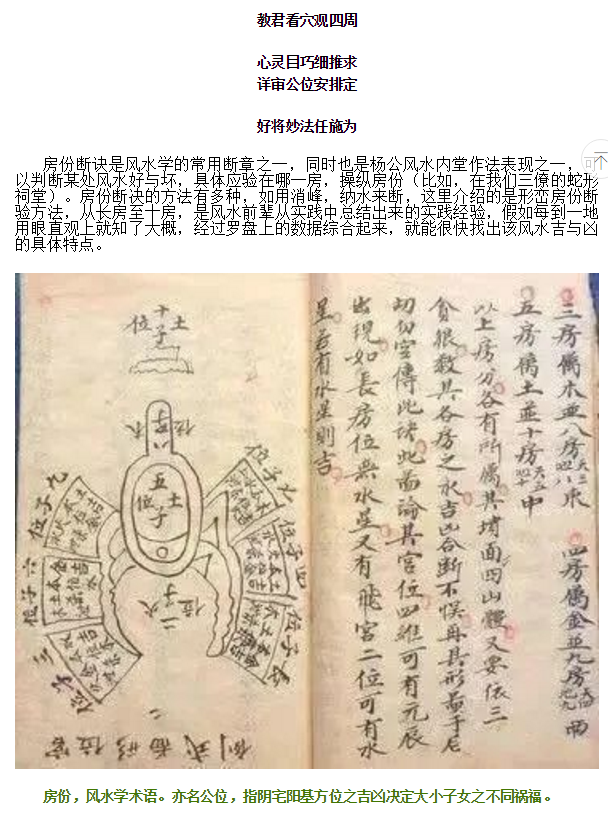 教君看穴观四周
心灵目巧细推求
详审公位安排定
好将妙法任施为
房份断诀是风水学的常用断章之一，同时也是杨公风水内堂作法表现之一，可
以判断某处风水好与坏，具体应验在哪一房，操纵房份（比如，在我们三僚的蛇形
祠堂）。房份断诀的方法有多种，如用消峰，纳水来断，这里介绍的是形峦房份断
验方法，从长房至十房，是风水前辈从实践中总结出来的实践经验，假如每到一地
用眼直观上就知了大概，经过罗盘上的数据综合起来，就能很快找出该风水吉与凶
的具体特点。
三房属木並八房 東
四房属金並九房 西
五房属土並十房 中
以上房分各有所属其堵面四山體又要依三
貪狠救其各房之水吉凶合断不悞再其形啚手応
切勿妄傳此诀此啚論其宮位四維可有元辰
出現如長房位無水星又有飛宮二位可有水
星若有水星則吉
十子位 土
八子位 木
五子位 土
二子位 火
七子位
四子位
長子位
九子位
六子位
三子位
倒式啚形位宮二
房份，风水学术语。亦名公位，指阴宅阳基方位之吉凶决定大小子女之不同祸福。